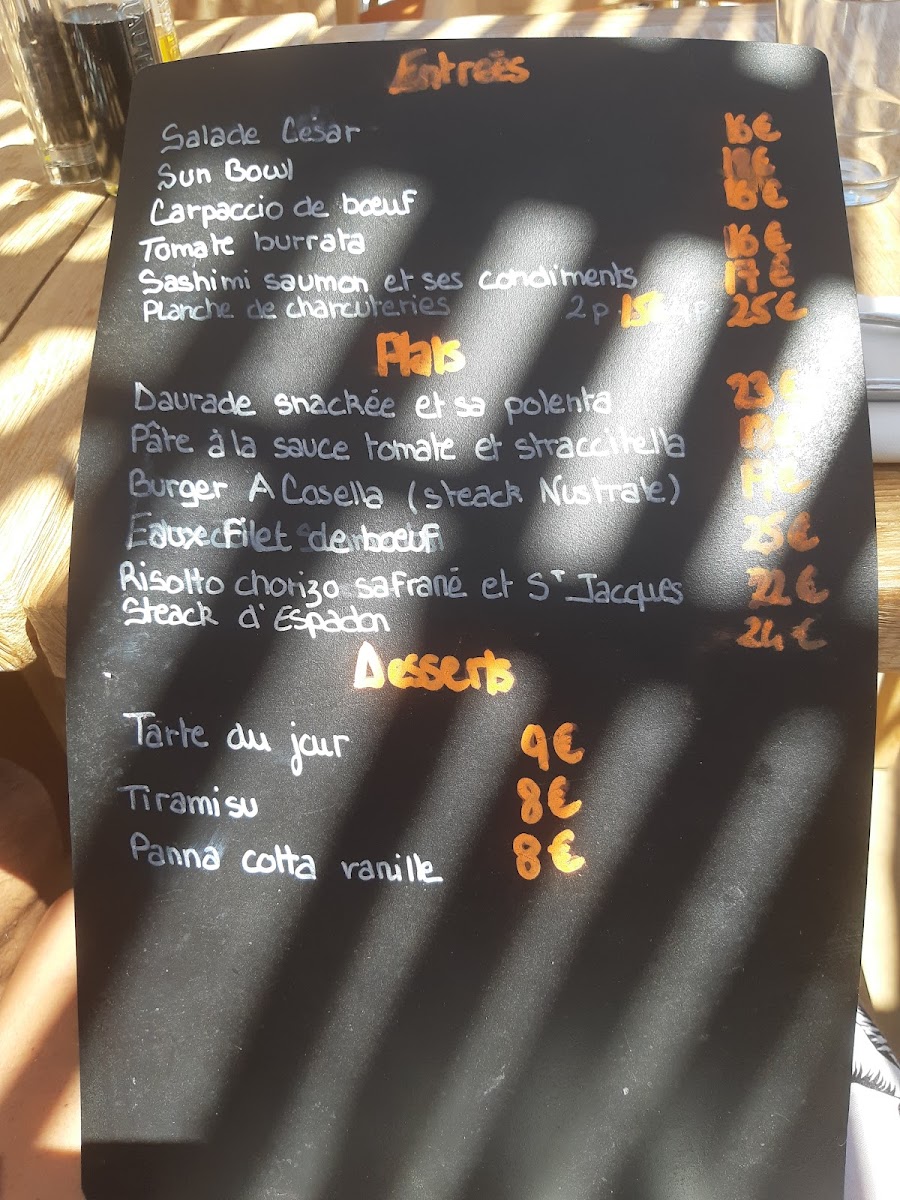 Entreés
Salade César 16€
Sun Bowl
Carpaccio de bœuf 16€
Tomate burrata 16€
Sashimi saumon et ses condiments 17€
Planche de charcuteries 2p 15 4p 25€
Plats
Daurade snackée et sa polenta 23€
Pâte à la sauce tomate et straccitella
Burger A Casella (steack Nustrale)
Filet de bœuf 25€
Risotto chorizo safrané et St Jacques 22€
Steack d'Espadon 24€
Desserts
Tarte du jour 9€
Tiramisu 8€
Panna cotta vanille 8€